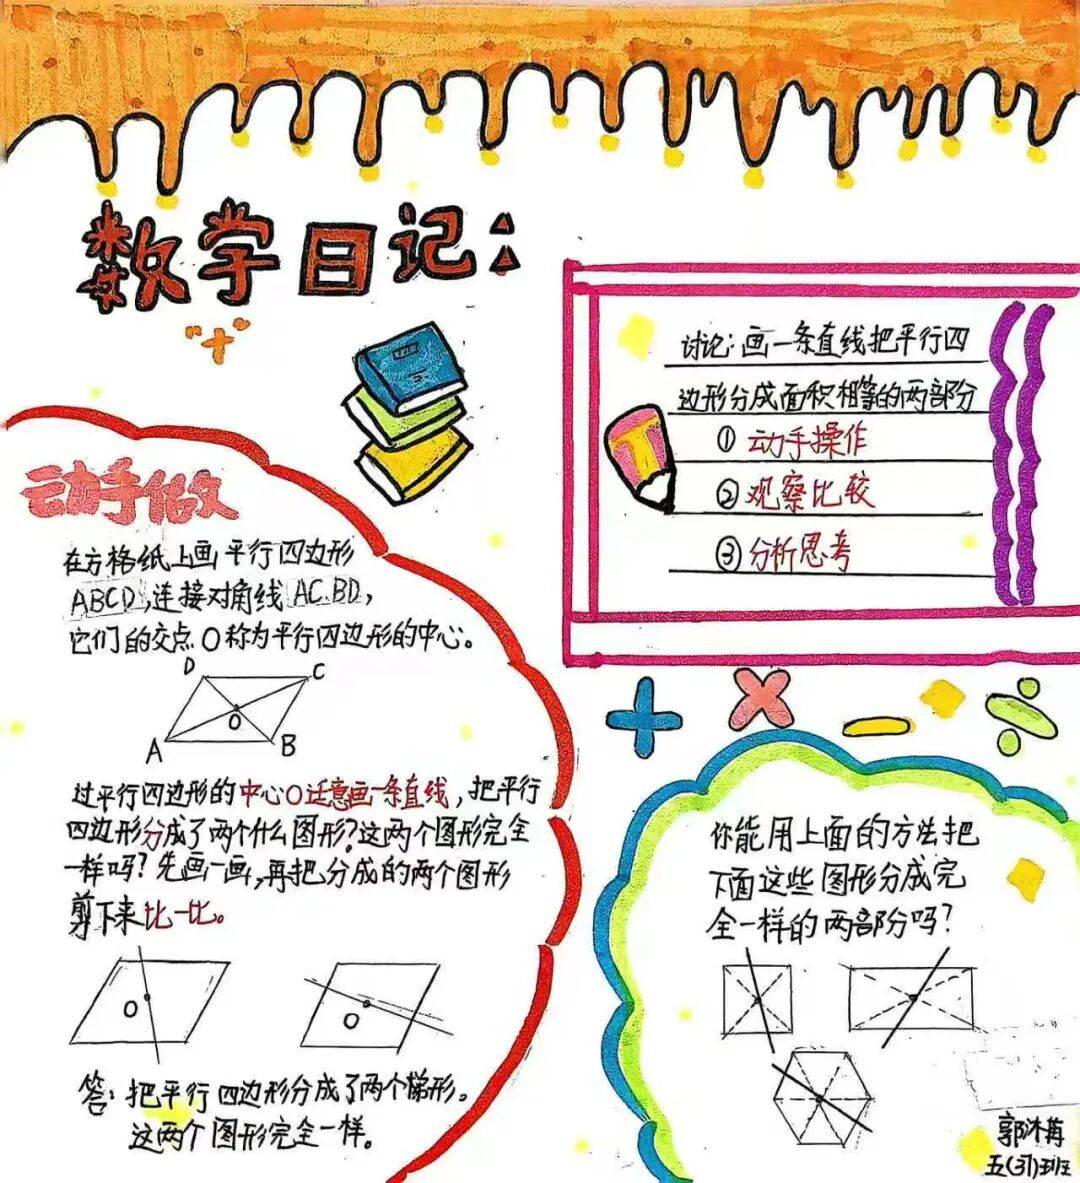 数学日记:
"十"
讨论:画一条直线把平行四
边形分成面积相等的两部分
①动手操作
②观察比较
③分析思考
动手做
在方格纸上画平行四边形
ABCD,连接对角线AC.BD,
它们的交点O称为平行四边形的中心。
D C
O
A B
过平行四边形的中心O任意画一条直线,把平行
四边形分成了两个什么图形?这两个图形完全
一样吗?先画一画,再把分成的两个图形
剪下来比一比。
O O
答:把平行四边形分成了两个梯形。
这两个图形完全一样。
你能用上面的方法把
下面这些图形分成完
全一样的两部分吗?
五(31)班